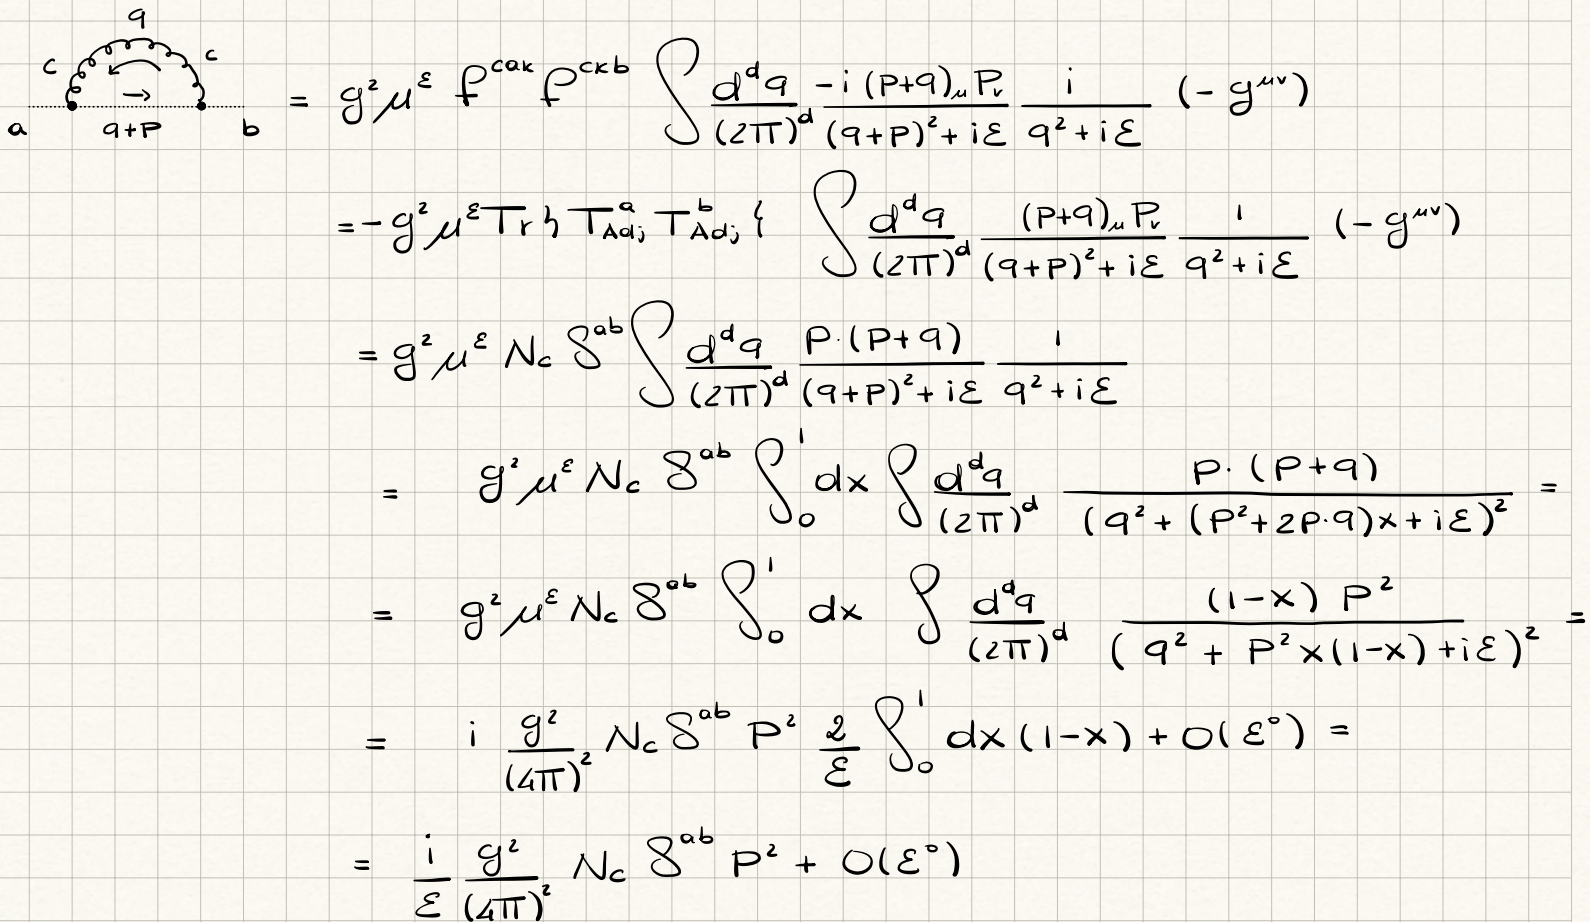 q
c c
a q+p b = g² μ^ε f^{cak} f^{ckb} ∫ d^d q/(2π)^d -i (p+q)_μ p_ν/((q+p)²+iε) i/(q²+iε) (-g^{μν})
= -g² μ^ε Tr{T^a_{Adj} T^b_{Adj}} ∫ d^d q/(2π)^d (p+q)_μ p_ν/((q+p)²+iε) 1/(q²+iε) (-g^{μν})
= g² μ^ε N_c δ^{ab} ∫ d^d q/(2π)^d p·(p+q)/((q+p)²+iε) 1/(q²+iε)
= g² μ^ε N_c δ^{ab} ∫_0^1 dx ∫ d^d q/(2π)^d p·(p+q)/(q²+(p²+2p·q)x+iε)² =
= g² μ^ε N_c δ^{ab} ∫_0^1 dx ∫ d^d q/(2π)^d (1-x) p²/(q² + p² x(1-x) +iε)² =
= i g²/(4π)² N_c δ^{ab} p² 2/ε ∫_0^1 dx (1-x) + O(ε°) =
= i/ε g²/(4π)² N_c δ^{ab} p² + O(ε°)